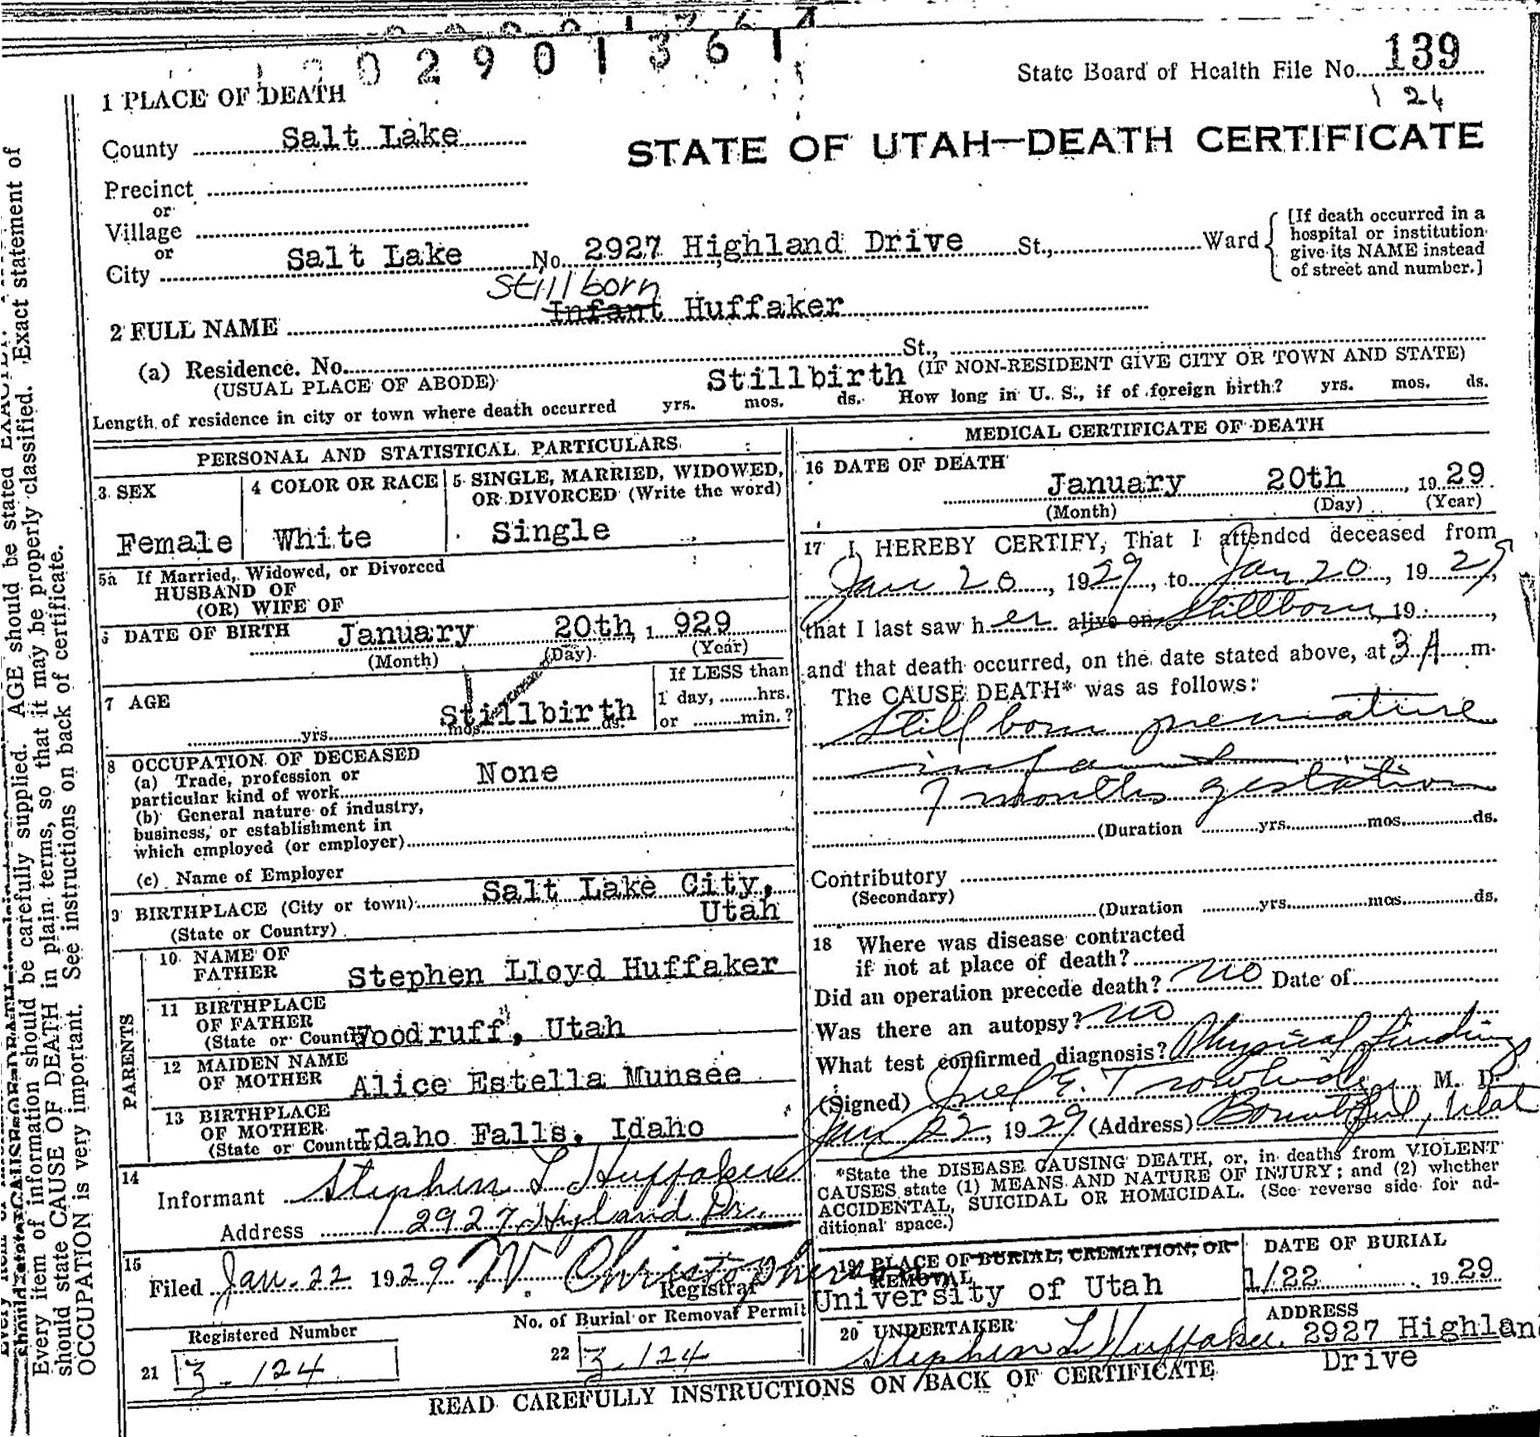 0 2 9 0 1 3 6 1
State Board of Health File No. 139
1 24
1 PLACE OF DEATH
County Salt Lake
STATE OF UTAH—DEATH CERTIFICATE
Precinct
or
Village
or
City Salt Lake No. 2927 Highland Drive St., Ward
[If death occurred in a
hospital or institution
give its NAME instead
of street and number.]
Stillborn
2 FULL NAME Infant Huffaker
(a) Residence. No. St.,
(USUAL PLACE OF ABODE) Stillbirth (IF NON-RESIDENT GIVE CITY OR TOWN AND STATE)
Length of residence in city or town where death occurred yrs. mos. ds. How long in U. S., if of foreign birth? yrs. mos. ds.
PERSONAL AND STATISTICAL PARTICULARS
3 SEX
Female
4 COLOR OR RACE
White
5 SINGLE, MARRIED, WIDOWED,
OR DIVORCED (Write the word)
Single
5a If Married, Widowed, or Divorced
HUSBAND OF
(OR) WIFE OF
6 DATE OF BIRTH January 20th, 1 929
(Month) (Day) (Year)
7 AGE
Stillbirth
yrs. mos. ds.
If LESS than
1 day, hrs.
or min.?
8 OCCUPATION OF DECEASED
(a) Trade, profession or
particular kind of work None
(b) General nature of industry,
business, or establishment in
which employed (or employer)
(c) Name of Employer
9 BIRTHPLACE (City or town) Salt Lake City,
(State or Country) Utah
PARENTS
10 NAME OF
FATHER Stephen Lloyd Huffaker
11 BIRTHPLACE
OF FATHER
(State or Country) Woodruff, Utah
12 MAIDEN NAME
OF MOTHER Alice Estella Munsee
13 BIRTHPLACE
OF MOTHER
(State or Country) Idaho Falls, Idaho
14
Informant Stephen L Huffaker
Address 2927 Hyland Dr.
15
Filed Jan. 22 1929 W. Christopherson
Registrar
Registered Number
21 3. 124
No. of Burial or Removal Permit
22 3. 124
MEDICAL CERTIFICATE OF DEATH
16 DATE OF DEATH
January 20th, 1929
(Month) (Day) (Year)
17 I HEREBY CERTIFY, That I attended deceased from
Jan 20, 1929, to Jan 20, 1929,
that I last saw her alive on Stillborn, 19 ,
and that death occurred, on the date stated above, at 3 A m.
The CAUSE DEATH* was as follows:
Still born premature
infant
7 months gestation
(Duration yrs. mos. ds.
Contributory
(Secondary)
(Duration yrs. mos. ds.
18 Where was disease contracted
if not at place of death?
Did an operation precede death? no Date of
Was there an autopsy? no
What test confirmed diagnosis? Physical findings
(Signed) Joel E. Trowbridge, M. D.
Jan 22, 1929 (Address) Bountiful, Utah
*State the DISEASE CAUSING DEATH, or, in deaths from VIOLENT
CAUSES state (1) MEANS AND NATURE OF INJURY; and (2) whether
ACCIDENTAL, SUICIDAL OR HOMICIDAL. (See reverse side for ad-
ditional space.)
19 PLACE OF BURIAL, CREMATION, OR
REMOVAL
University of Utah
DATE OF BURIAL
1/22 1929
20 UNDERTAKER
Stephen L Huffaker
ADDRESS
2927 Highland
Drive
READ CAREFULLY INSTRUCTIONS ON BACK OF CERTIFICATE
Every item of information should be carefully supplied. AGE should be stated EXACTLY.
should state CAUSE OF DEATH in plain terms, so that it may be properly classified. Exact statement of
OCCUPATION is very important. See instructions on back of certificate.